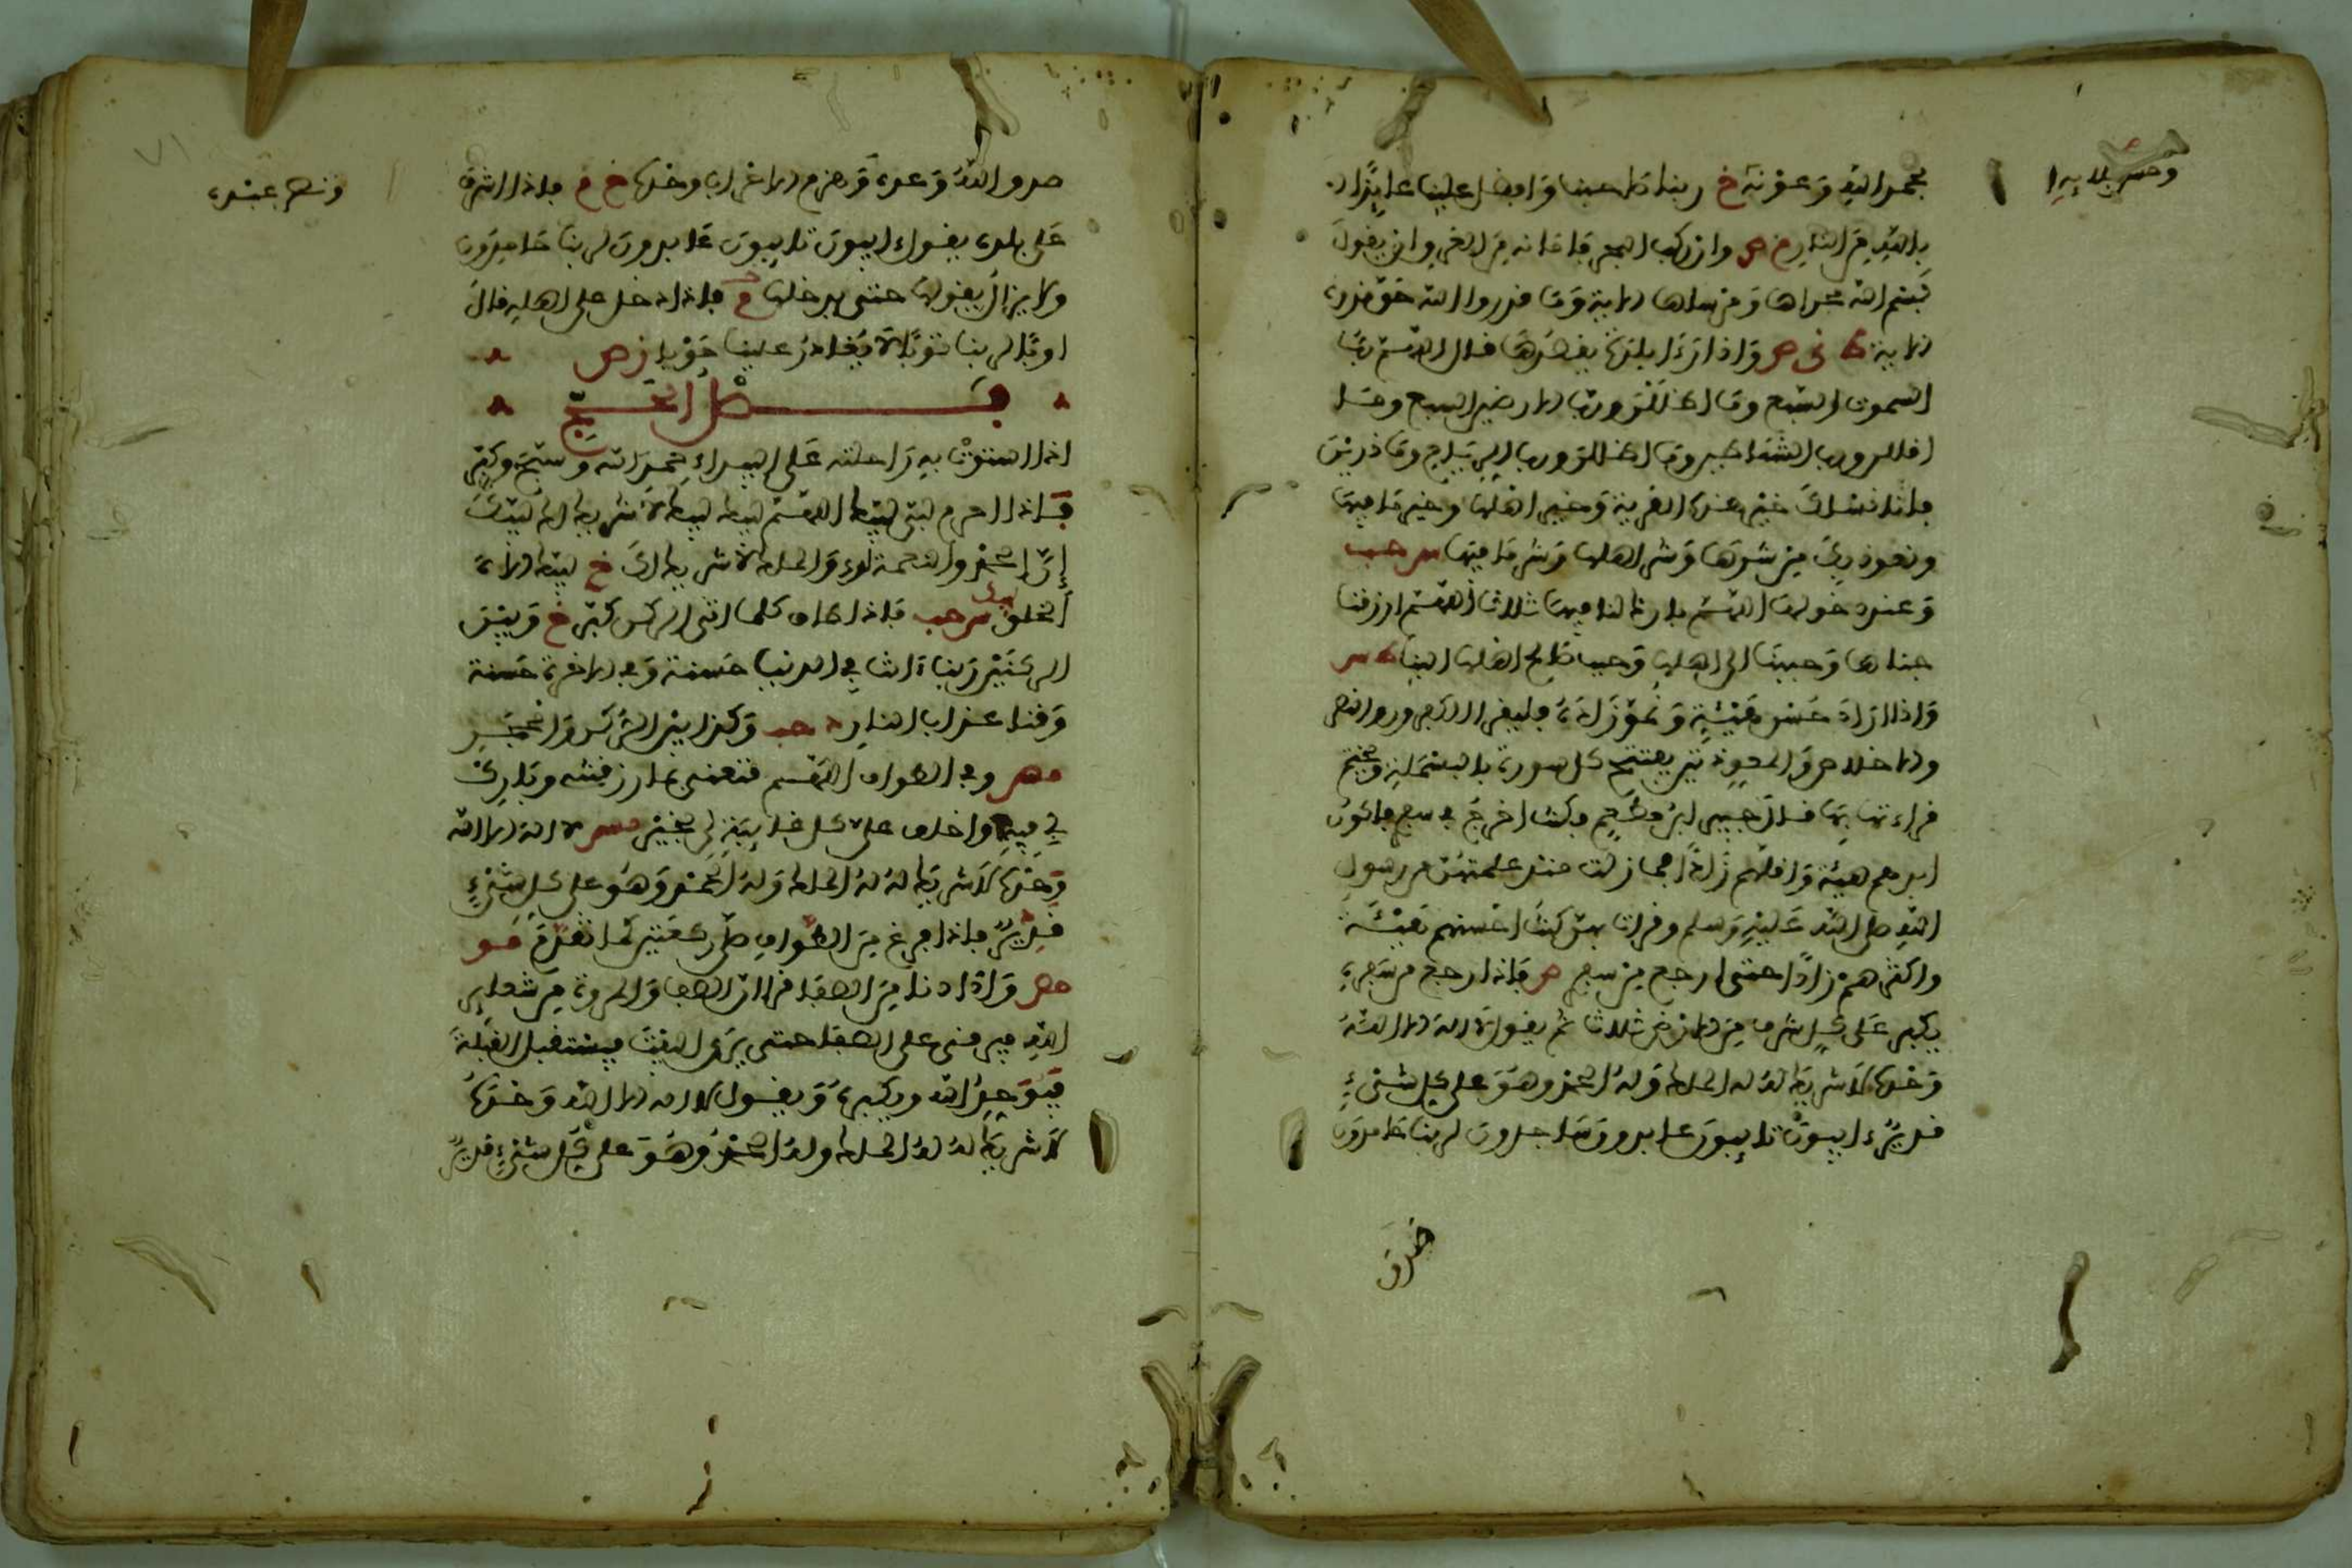 وحسن بلائه
بحمد الله وعونه خ ربنا صاحبنا وافضل علينا عائذا
بالله من النار م ص وان ركب البحر فامانه من الغرق ان يقول
بسم الله مجراها ومرساها الاية وما قدروا الله حق قدره
الاية ط ى ص واذا رءا بلدة يقصدها قال اللهم رب
السموات السبع وما اظللن ورب الارضين السبع وما
اقللن ورب الشياطين وما اضللن ورب الرياح وما ذرين
فانا نسلك خير هذه القرية وخير اهلها وخير ما فيها
ونعوذ بك من شرها وشر اهلها وشر ما فيها س حب
وعند دخولها اللهم بارك لنا فيها ثلاثا اللهم ارزقنا
جناها وحببنا الى اهلها وحبب صالح اهلها الينا ط س
واذا اراد حسن هيئة ونمو زاده فليقرا الكافرون والنصر
والاخلاص والمعوذتين يفتتح كل سورة بالبسملة ويختم
قراءته بها قال جبير ابن مطعم وكنت اخرج في سفر فاكون
ابذهم هيئة واقلهم زادا فما زلت منذ علمتهن من رسول
الله صلى الله عليه وسلم وقرات بهن كنت احسنهم هيئة
واكثرهم زادا حتى ارجع من سفر ص فاذا رجع من سفره
يكبر على كل شرف من الارض ثلاثا ثم يقول لا اله الا الله
وحده لا شريك له له الملك وله الحمد وهو على كل شيء
قدير ءايبون تايبون عابدون ساجدون لربنا حامدون
صدق
ونصر عبده
صدق الله وعده وهزم الاحزاب وحده خ م فاذا اشرف
على بلده يقول ءايبون تايبون عابدون لربنا حامدون
ولا يزال يقولها حتى يدخلها خ م فاذا دخل على اهله قال
اوبا لربنا توبا لا يغادر علينا حوبا ز ص
فصل الحج
اذا استوت به راحلته على البيداء حمد الله وسبح وكبر
فاذا احرم لبى لبيك اللهم لبيك لبيك لا شريك لك لبيك
إن الحمد والنعمة لك والملك لا شريك لك خ لبيك اله
الحق لبيك س حب فاذا طاف كلما اتى الركن كبر خ وبين
الركنين ربنا ءاتنا في الدنيا حسنة وفي الاخرة حسنة
وقنا عذاب النار د حب وكذا بين الركن والحجر
مص وفي الطواف اللهم قنعني بما رزقتني وبارك
لي فيه واخلف على كل غايبة لي بخير مس لا اله الا الله
وحده لا شريك له له الملك وله الحمد وهو على كل شيء
قدير فاذا فرغ من الطواف صلى ركعتين كما تقدم مو
مص واذا دنا من الصفا قرا ان الصفا والمروة من شعاير
الله فيرقى على الصفا حتى يرى البيت فيستقبل القبلة
فيوحد الله ويكبره ويقول لا اله الا الله وحده
لا شريك له له الملك وله الحمد وهو على كل شيء قدير